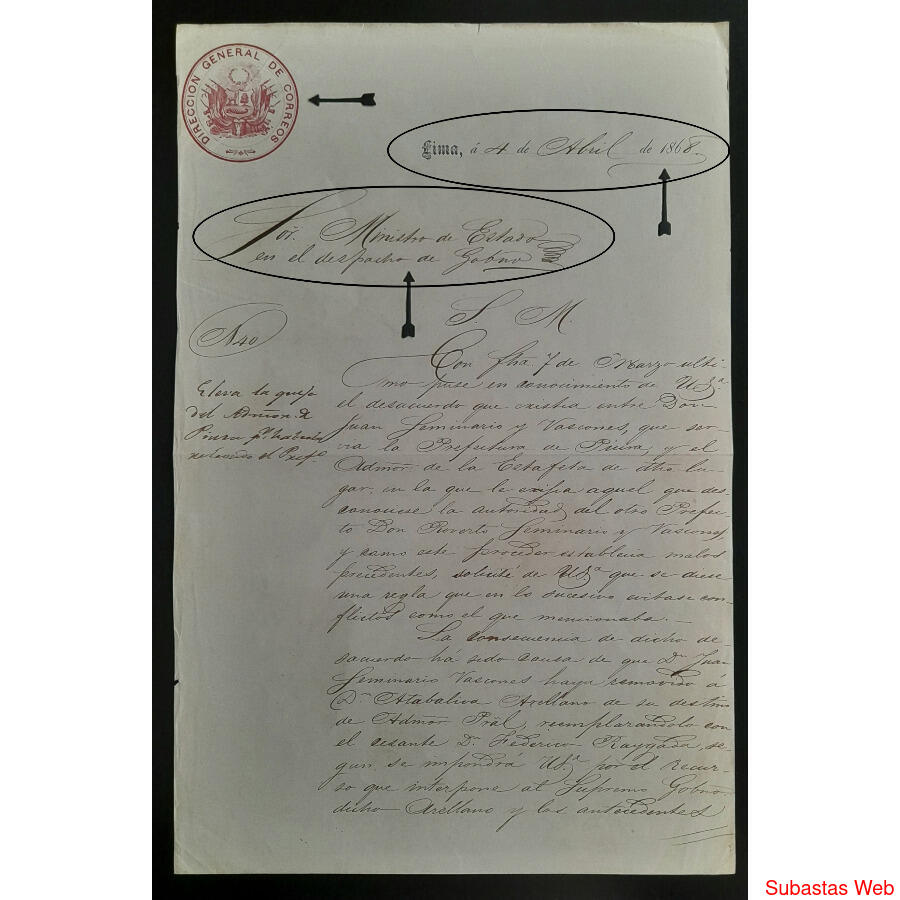 DIRECCION GENERAL DE CORREOS
Lima, á 4 de Abril de 1868.
Sor. Ministro de Estado
en el despacho de Gobno
S. M.
N 40
Eleva la queja
del Admor. de
Piura pr. haberlo
el Prefo
Con fha. 7 de Marzo ulti-
mo puse en conocimiento de USa.
el desacuerdo que existia entre Don
Juan Seminario y Vascones, que ser-
via la Prefectura de Piura, y el
Admor. de la Estafeta de dho. lu-
gar, en la que le exijia aquel que des-
conociese la autoridad del otro Prefec-
to Don Roverto Seminario y Vascones,
y como este proceder establecia malos
precedentes, solicité de USa. que se diese
una regla que en lo sucesivo evitase con-
flictos como el que mencionaba.
La consecuencia de dicho de-
sacuerdo há sido causa de que Dn. Juan
Seminario Vascones haya removido á
Dn. Atabaliva Arellano de su destino
de Admor Pral, reemplazandolo con
el cesante Dn. Federico Raygada, se-
gun se impondrá USa. por el recur-
so que interpone al Supremo Gobno
dicho Arellano y los antecedentes
Subastas Web